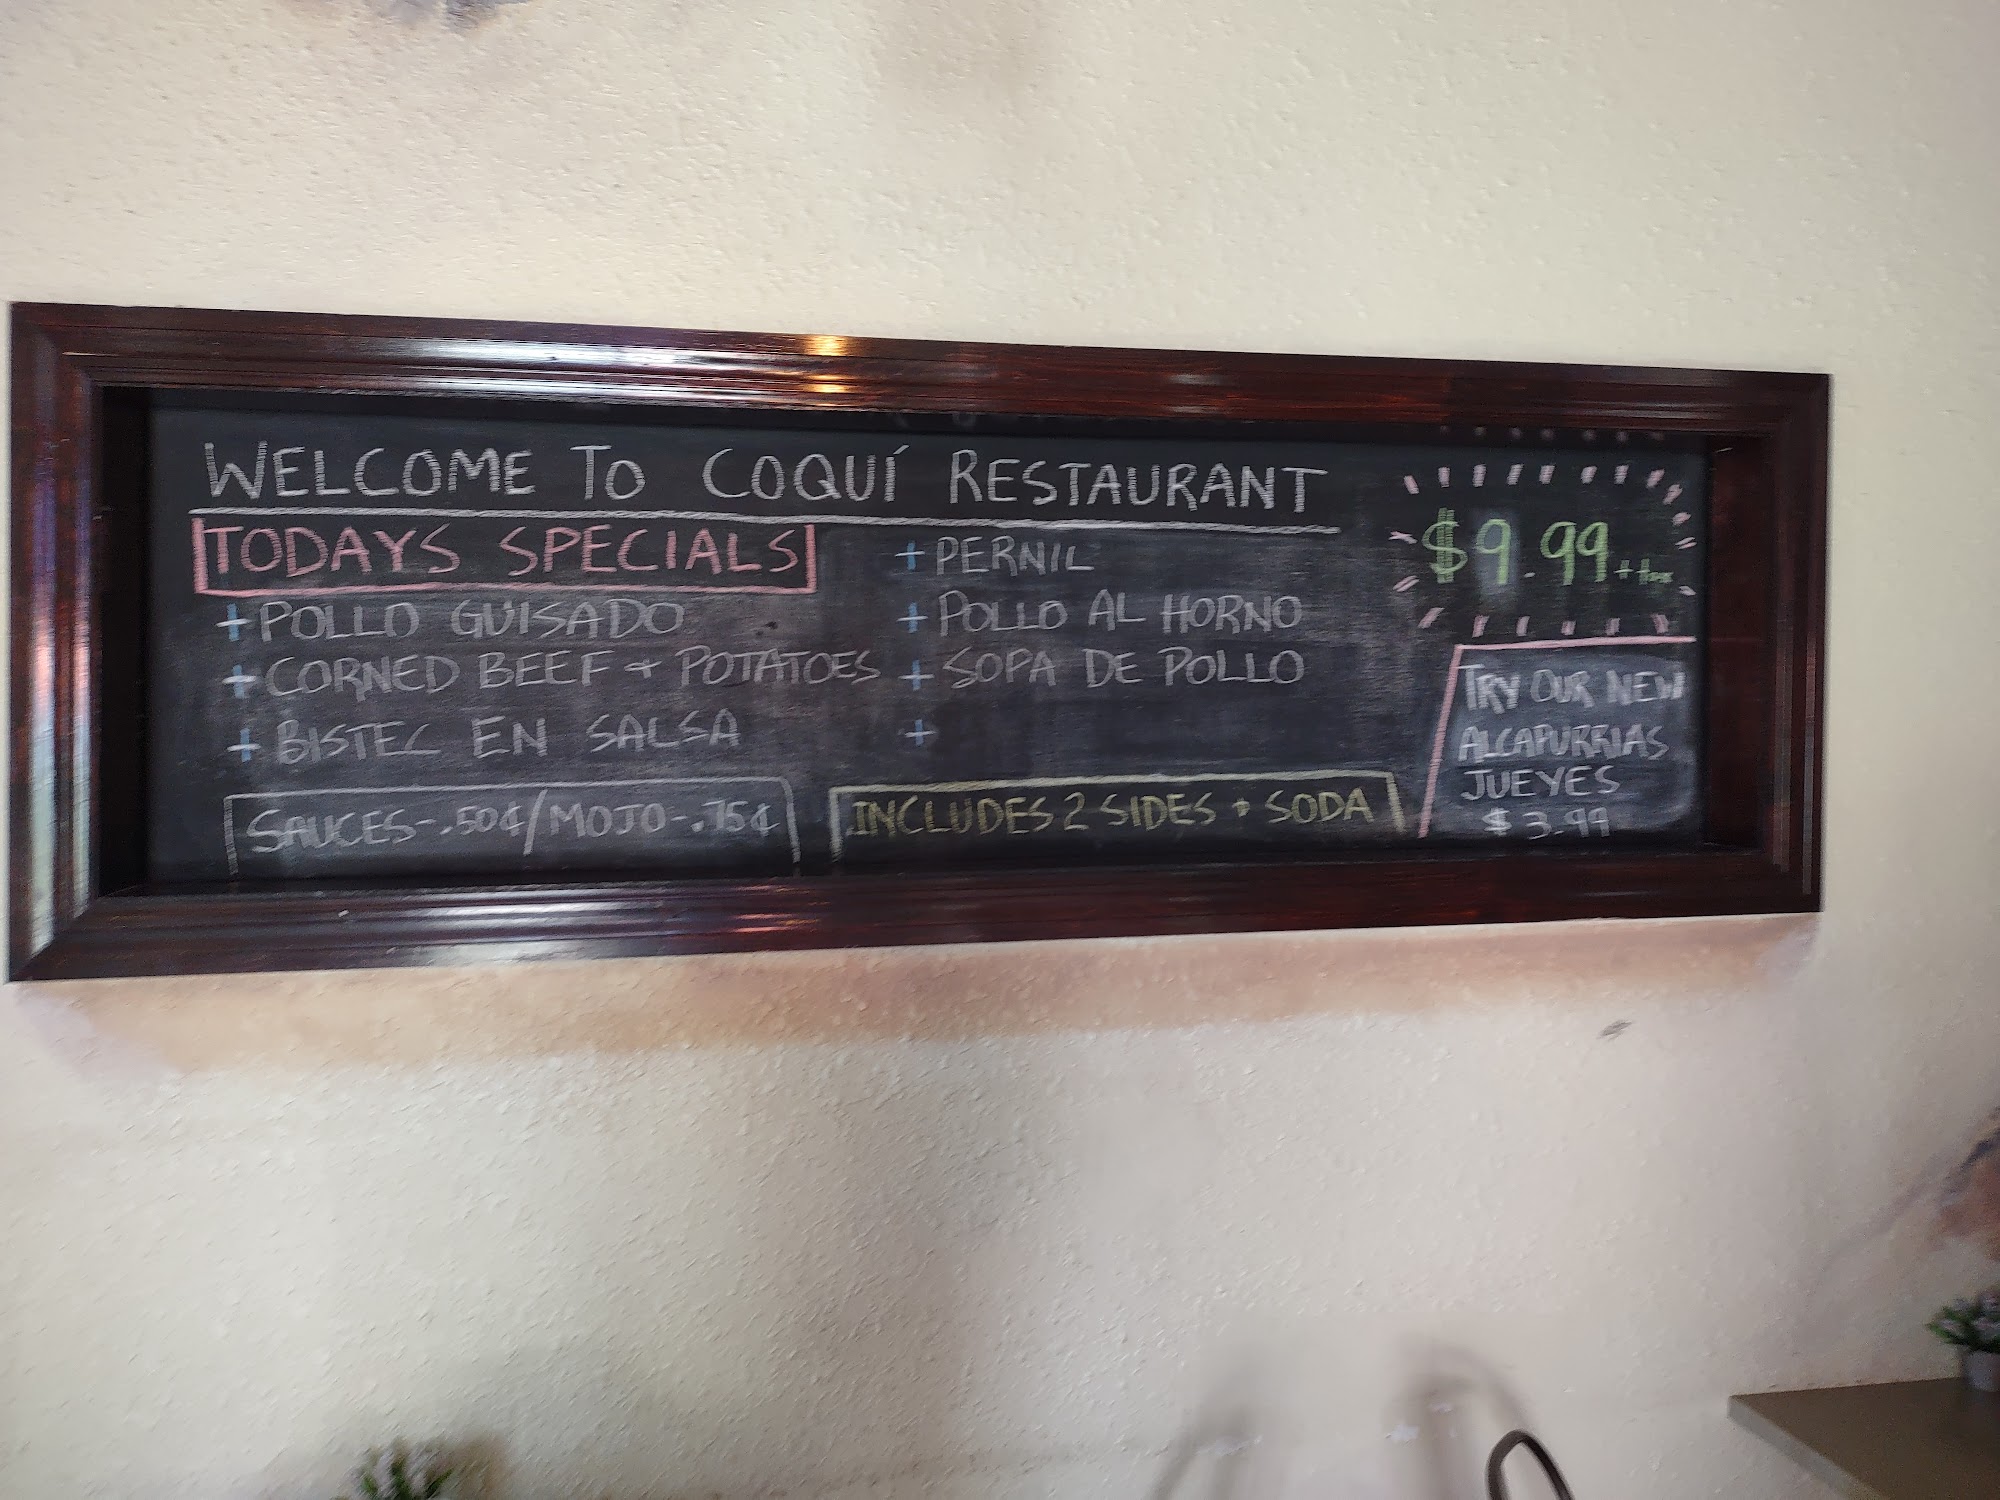 WELCOME TO COQUÍ RESTAURANT
TODAYS SPECIALS
+ POLLO GUISADO
+ CORNED BEEF + POTATOES
+ BISTEC EN SALSA
+ PERNIL
+ POLLO AL HORNO
+ SOPA DE POLLO
+
$9.99 + tax
SAUCES-.50¢/MOJO-.75¢
INCLUDES 2 SIDES + SODA
TRY OUR NEW
ALCAPURRIAS
JUEYES
$3.99